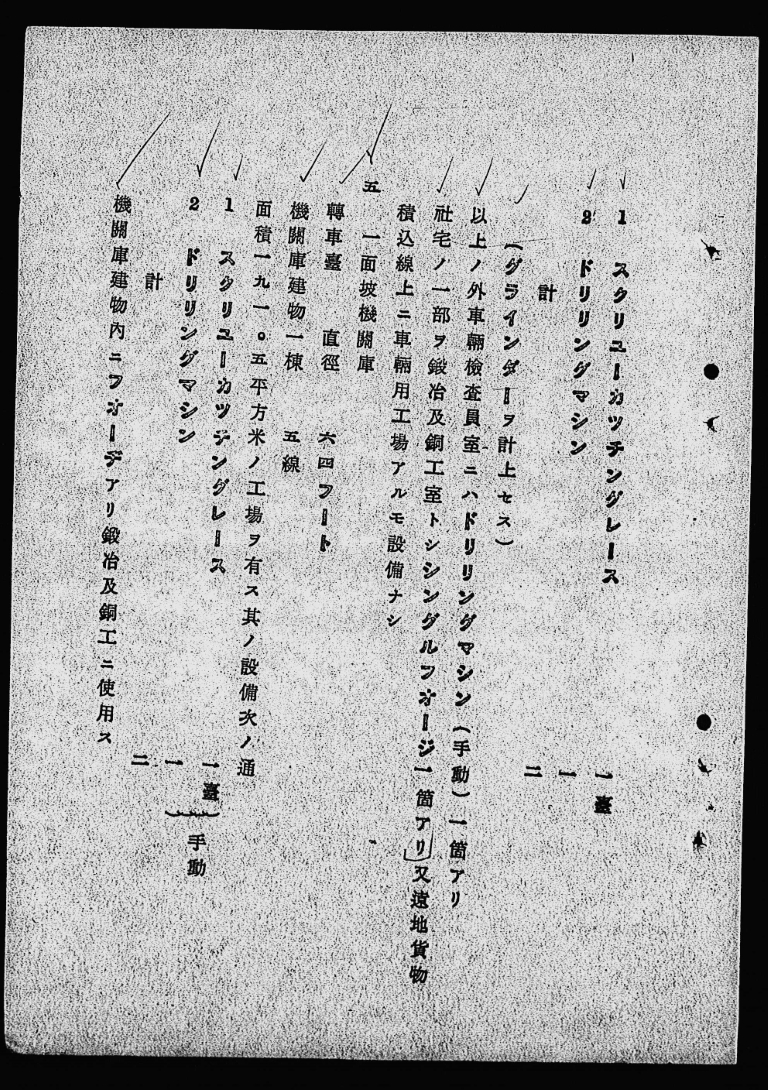 1 スクリユーカツチングレース 一臺
2 ドリリングマシン 一
計 二
(グラインダーヲ計上セス)
以上ノ外車輛檢査員室ニハドリリングマシン(手動)一箇アリ
社宅ノ一部ヲ鍛冶及銅工室トシシングルフオージ一箇アリ又遠地貨物
積込線上ニ車輛用工場アルモ設備ナシ
五 一面坡機關庫
轉車臺 直徑 六四フート
機關庫建物一棟 五線
面積一九一。五平方米ノ工場ヲ有ス其ノ設備次ノ通
1 スクリユーカツチングレース 一臺
2 ドリリングマシン 一
手動
計 二
機關庫建物內ニフオーヂアリ鍛冶及銅工ニ使用ス